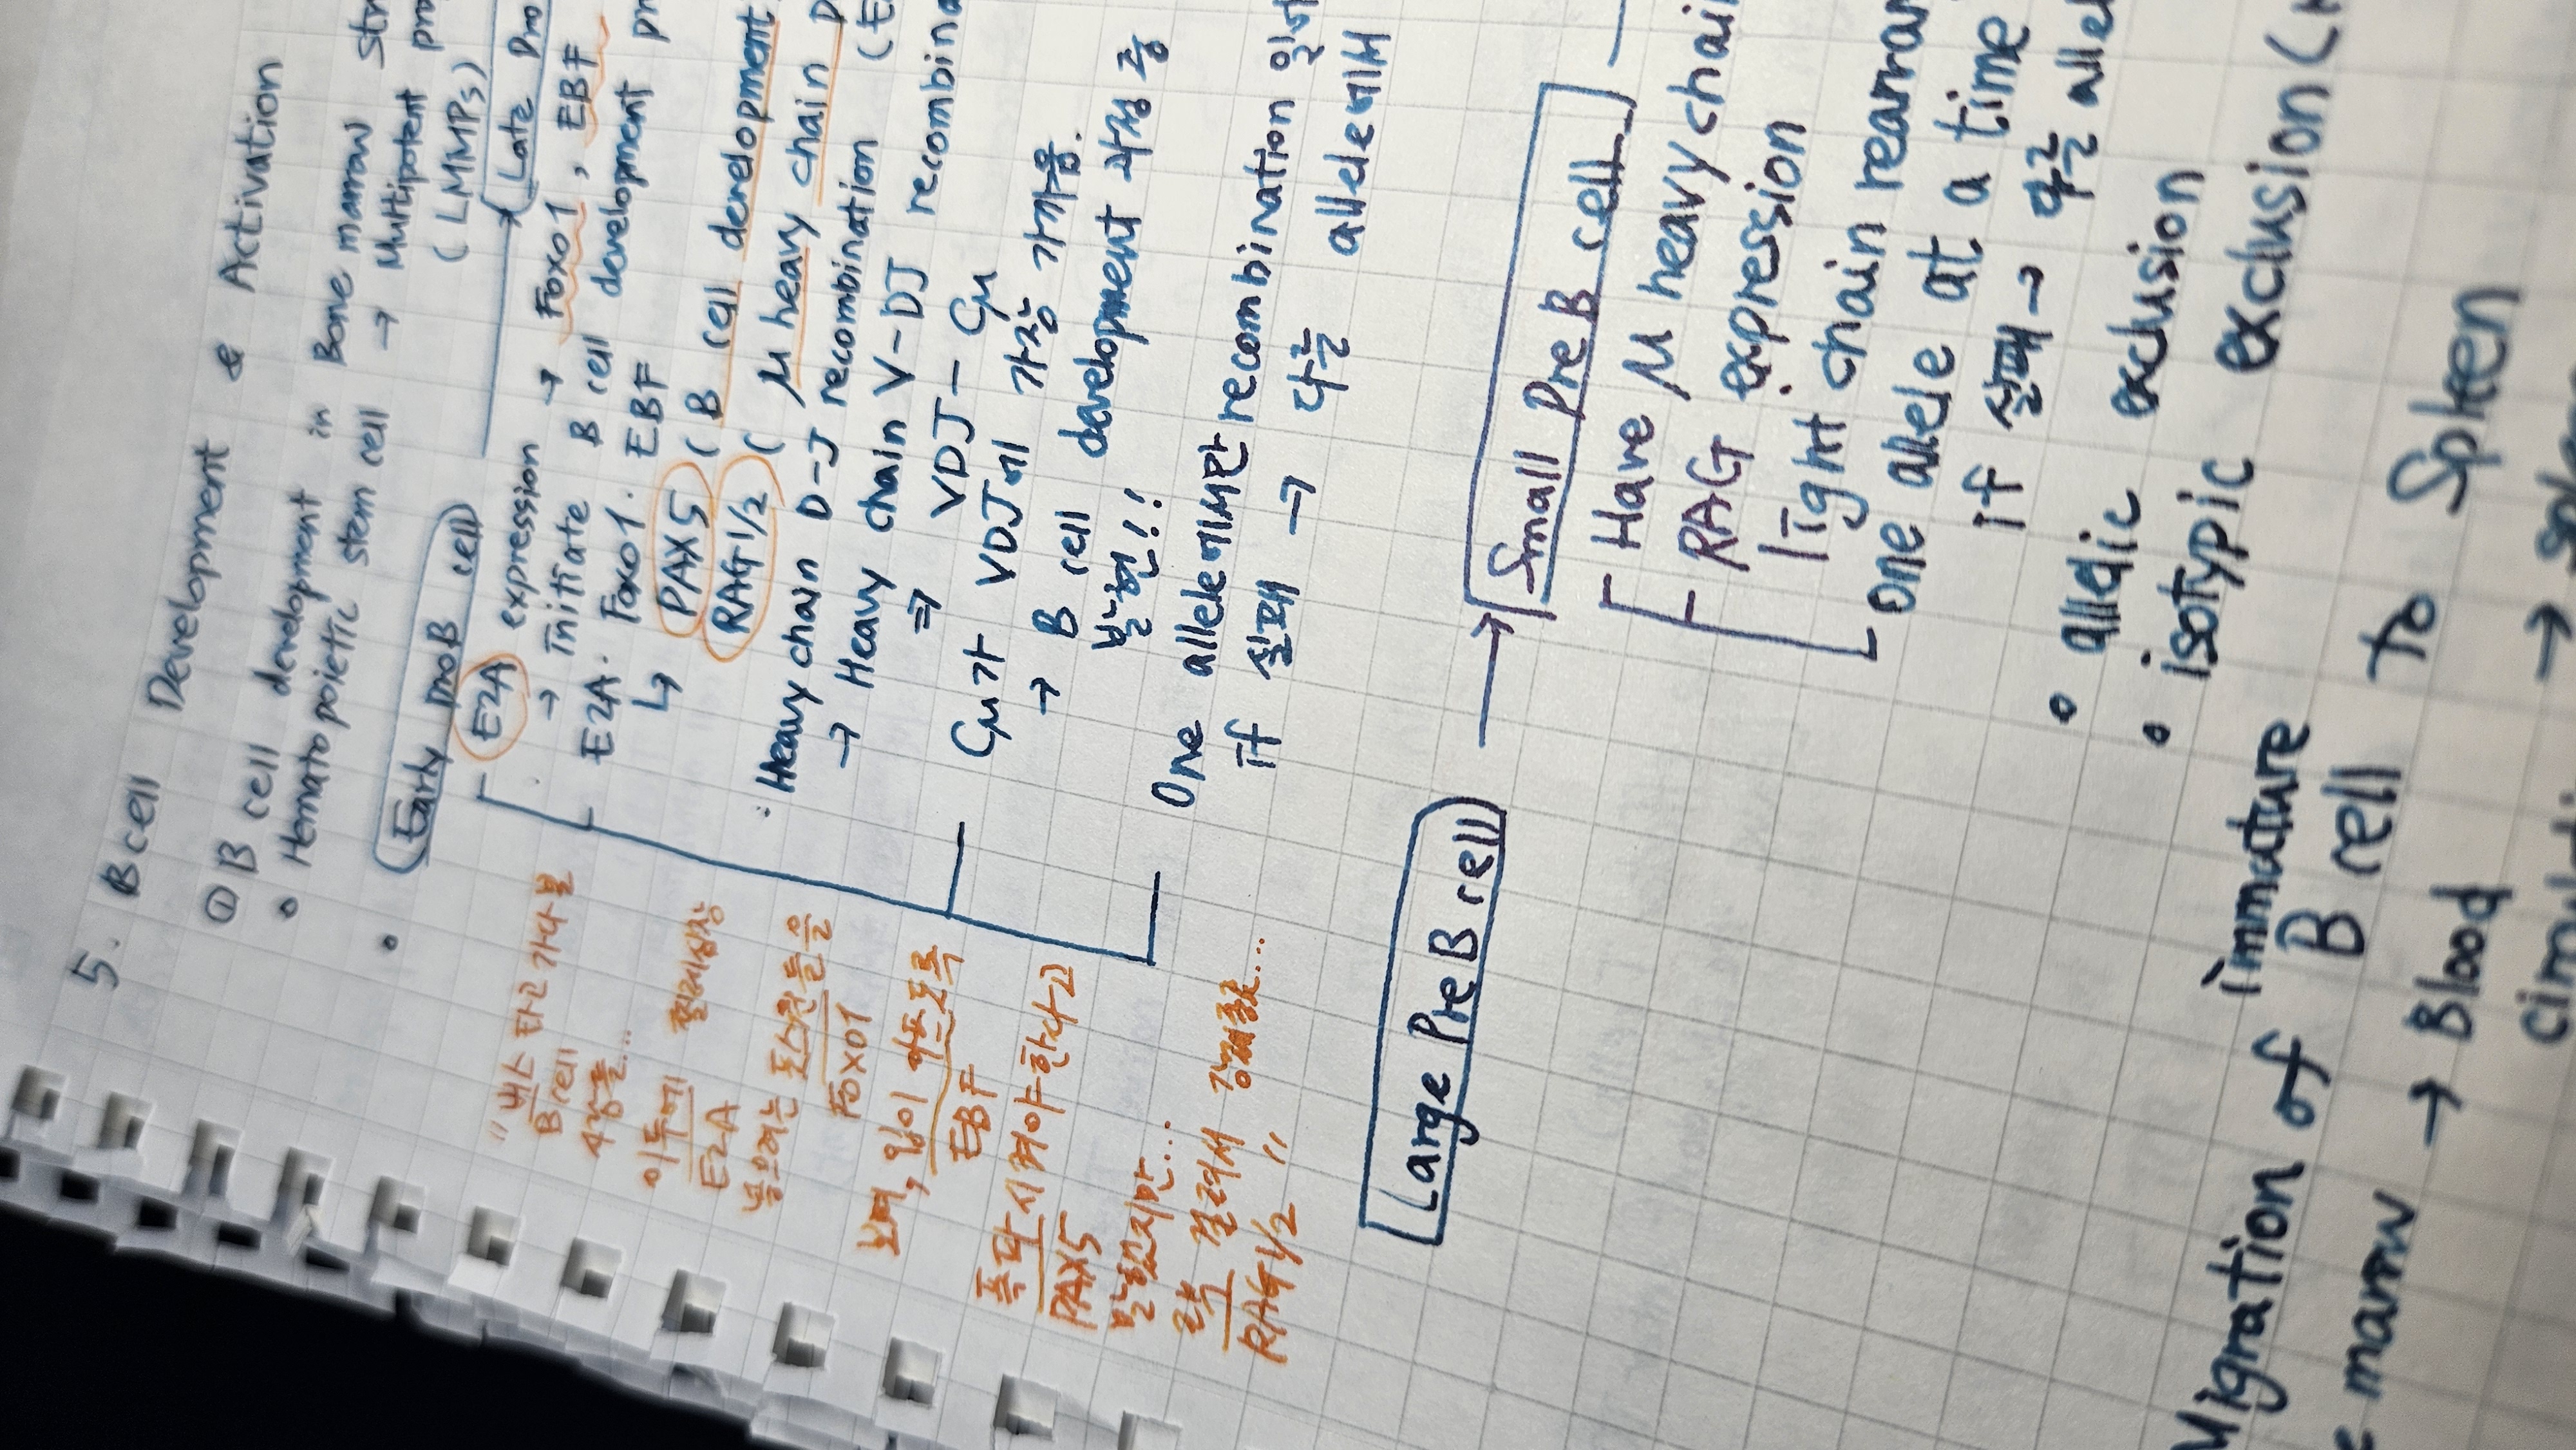 5. B cell Development & Activation
① B cell development in Bone marrow
• Hematopoietic stem cell → Multipotent
(LMMPs)
• Early proB cell → Late
E2A expression → Foxo1, EBF
→ initiate B cell development
E2A. Foxo1. EBF
↳ PAX5 ( B cell development
RAG1/2 ( μ heavy chain
Heavy chain D-J recombination
→ Heavy chain V-DJ
⇒ VDJ - Cμ
Cμ가 VDJ에 가장 가까움.
→ B cell development 과정 중
발현!!
One allele에서만 recombination
if 실패 → 다른 allele에서
"버스타고가다보
B cell
4강쯤...
이두에 할레성상
E2A
넣으려는 폭스원들을
FOXO1
보며, 입이 아프도록
EBF
폭탄시켜야한다고
PAX5
말했지만...
락 걸려서 강제종료...
RAG1/2 "
Large PreB cell → Small PreB cell
Have μ heavy chain
RAG expression
light chain
One allele at a time
if 실패 → 다른
• allelic exclusion
• isotypic exclusion
Migration of immature B cell to Spleen
marrow → Blood →